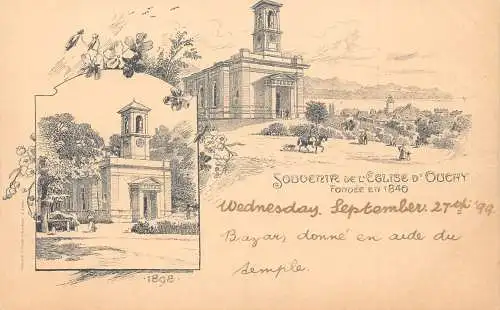 SOUVENIR DE L'ÉGLISE D'OUCHY
FONDÉE EN 1840
Wednesday, September. 27th '99
Bazar, donné en aide du
temple.
1898